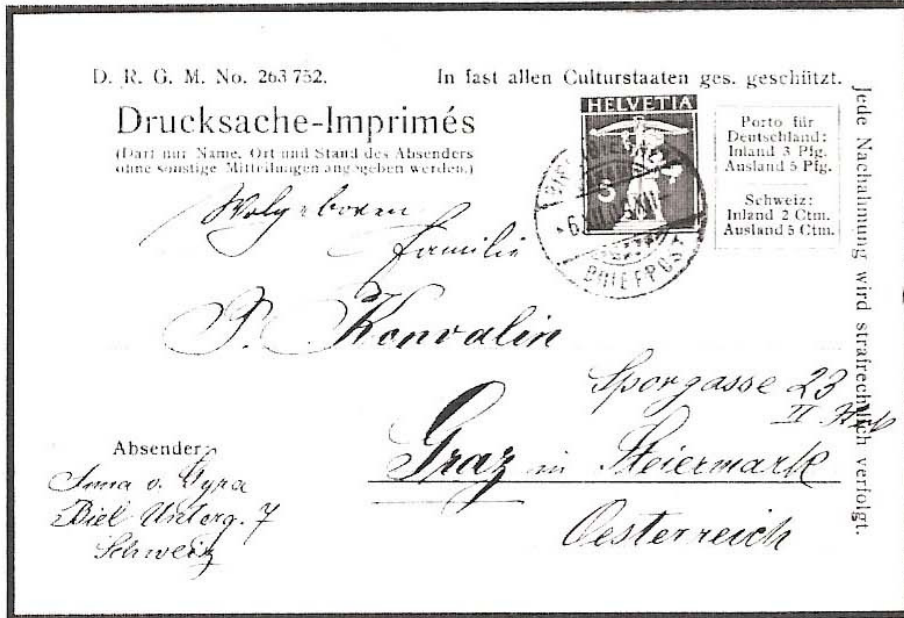 D. R. G. M. No. 263 752.
In fast allen Culturstaaten ges. geschützt.
Drucksache-Imprimés
(Darf nur Name, Ort und Stand des Absenders
ohne sonstige Mitteilungen angegeben werden.)
HELVETIA
5
BRIEFPOST
Porto für
Deutschland:
Inland 3 Pfg.
Ausland 5 Pfg.
Schweiz:
Inland 2 Ctm.
Ausland 5 Ctm.
Jede Nachahmung wird strafrechtlich verfolgt.
Familie
P. Konvalin
Sporgasse 23
II
Graz in Steiermark
Oesterreich
Absender:
v.
Biel Unterg. 7
Schweiz